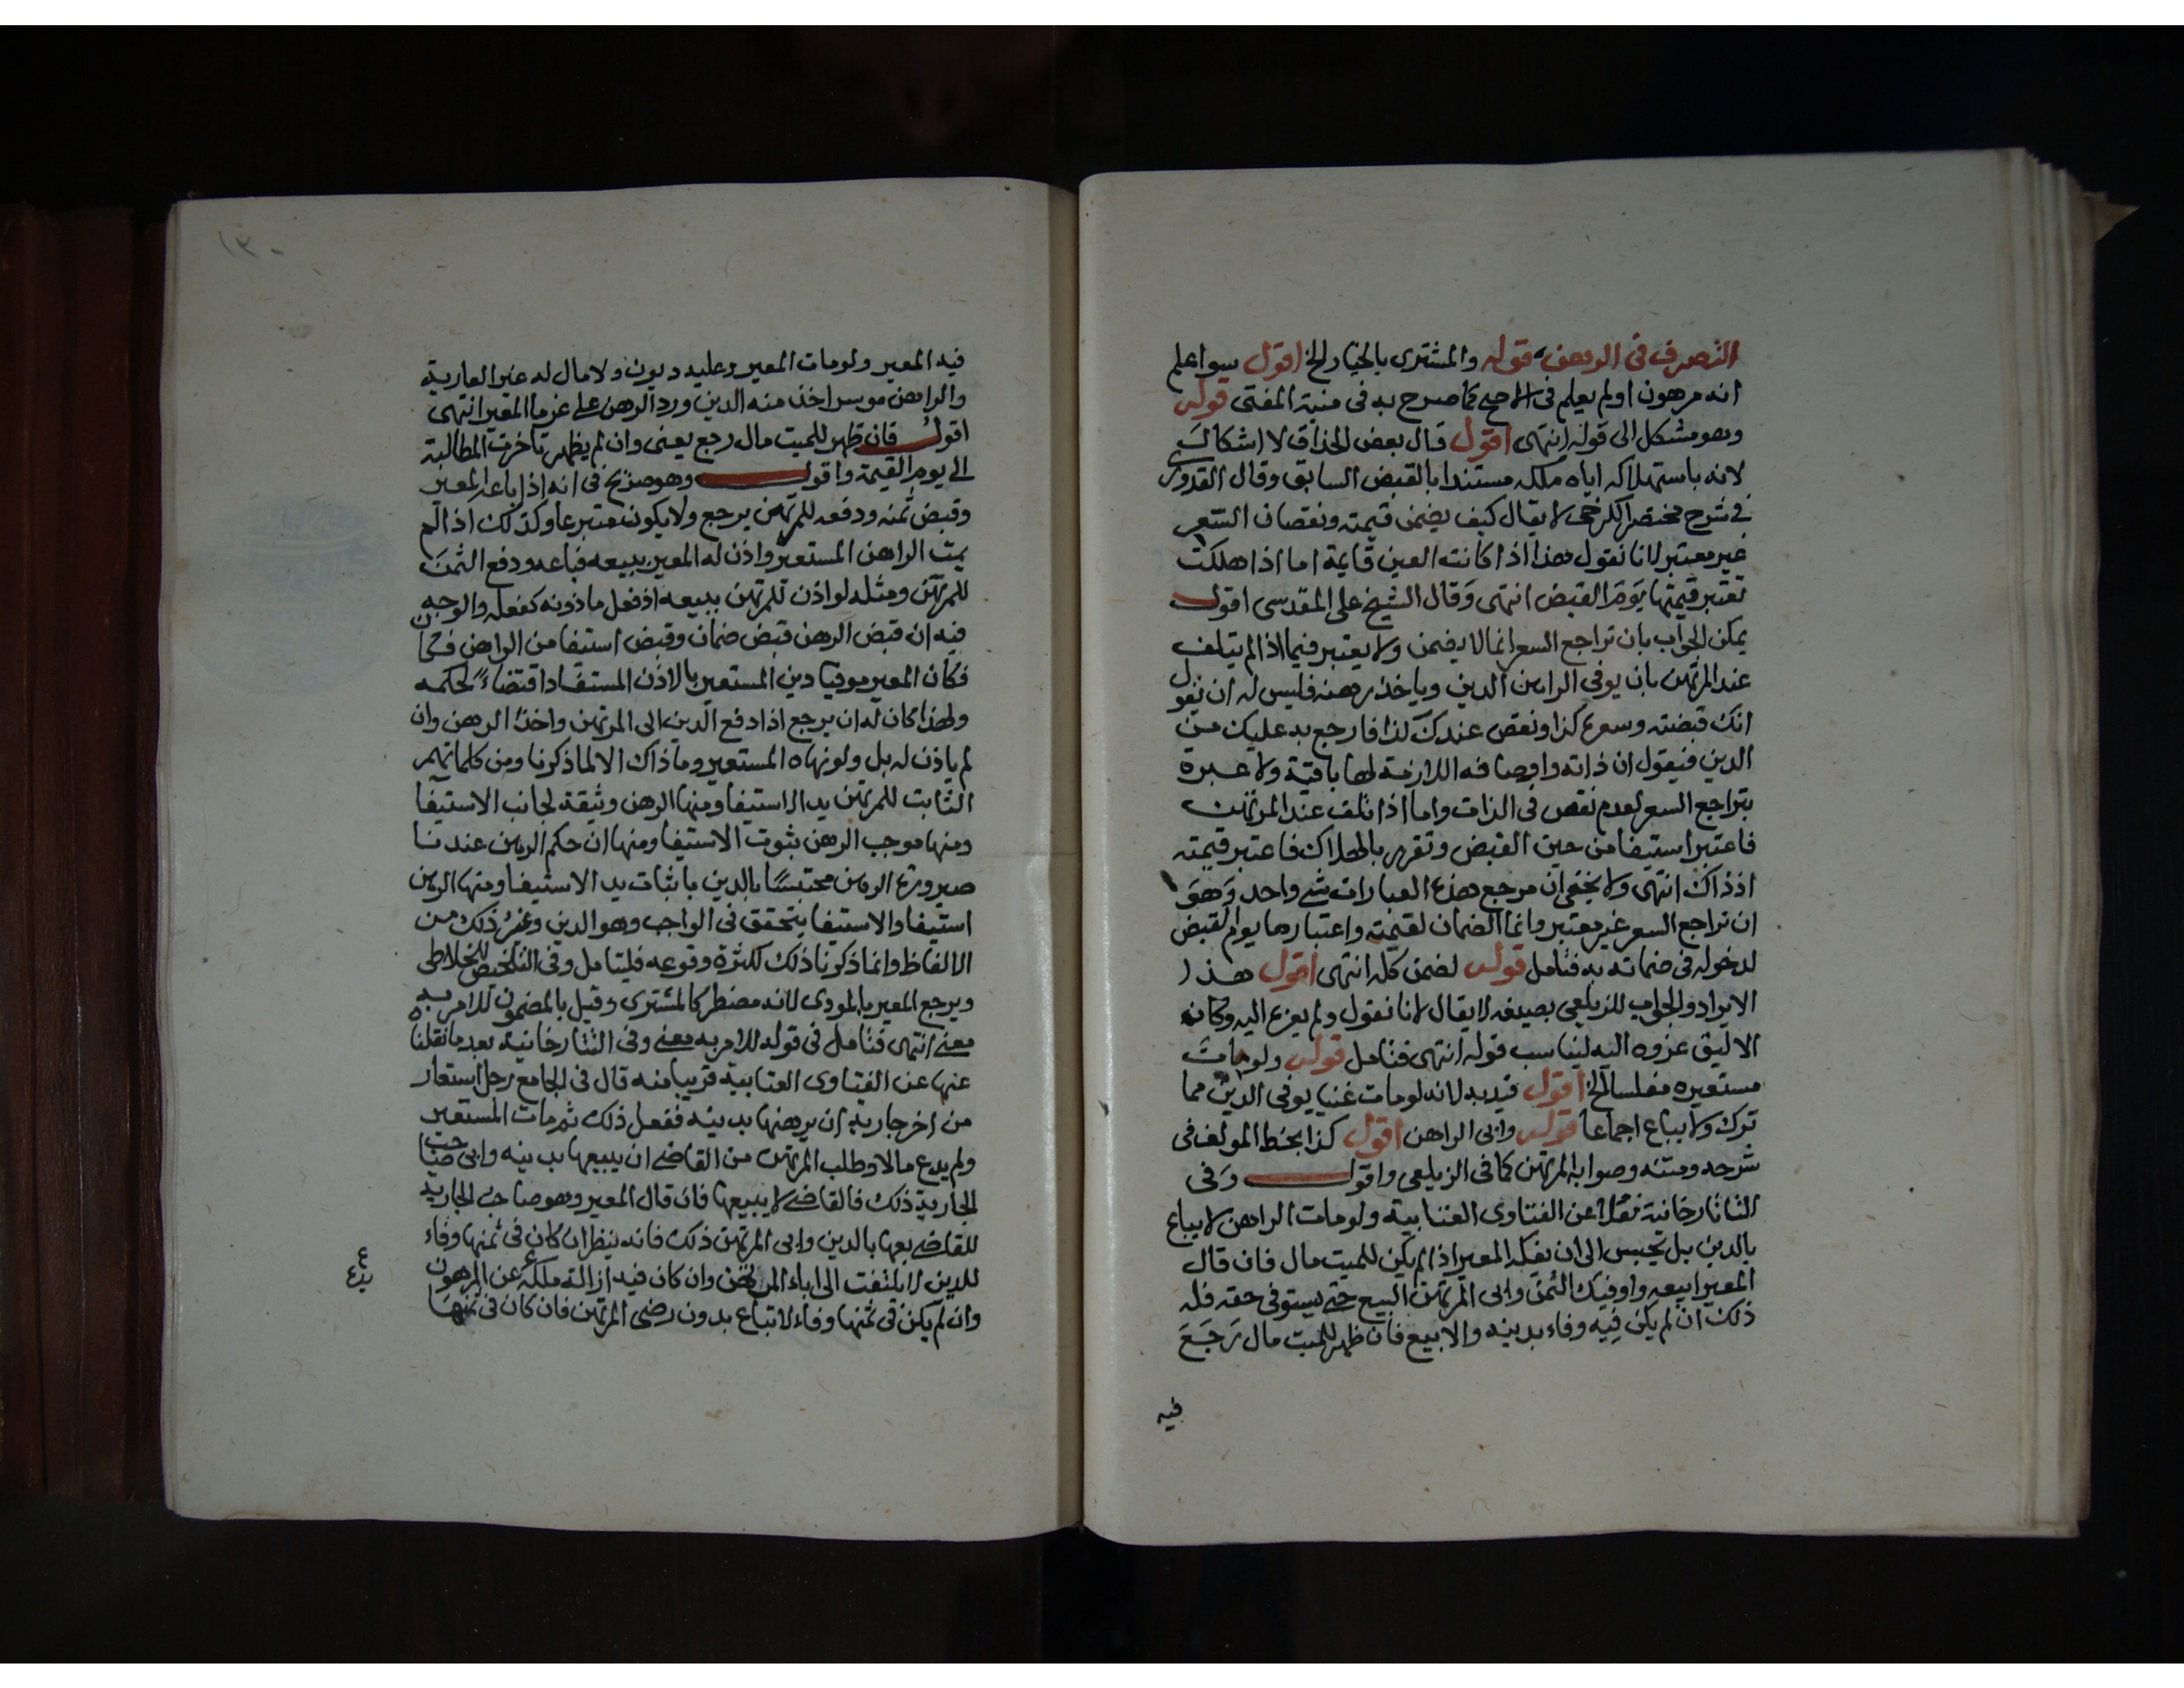 التصرف في الرهن قوله والمشترى بالخيار الخ اقول سوا علم
انه مرهون او لم يعلم في الاصح كما صرح به في منية المفتى قوله
وهو مشكل الى قوله انتهى اقول قال بعض الحذاق لا اشكال
لانه باستهلاكه اياه ملكه مستندا بالقبض السابق وقال القدورى
في شرح مختصر الكرخى لا يقال كيف يضمن قيمته ونقصان السعر
غير معتبر لانا نقول هذا اذا كانت العين قايمة اما اذا هلكت
تعتبر قيمتها يوم القبض انتهى وقال الشيخ على المقدسى اقول
يمكن الجواب بان تراجع السعر انما لا يضمن ولا يعتبر فيما اذا لم يتلف
عند المرتهن بان يوفي الراهن الدين وياخذ رهنه فليس له ان يقول
انك قبضته وسعره كذا ونقص عندك كذا فارجع به عليك من
الدين فيقول ان ذاته واوصافه اللازمة لها باقية ولا عبرة
بتراجع السعر لعدم نقص في الذات واما اذا تلف عند المرتهن
فاعتبر استيفا من حين القبض وتقرر بالهلاك فاعتبر قيمته
اذ ذاك انتهى ولا يخفى ان مرجع هذه العبارات شى واحد وهو
ان تراجع السعر غير معتبر وانما الضمان لقيمته واعتبارها يوم القبض
لدخوله في ضمانه به فتامل قوله لضمن كله انتهى اقول هذا
الايراد والجواب للزيلعى بصيغة لا يقال لانا نقول ولم يعزه اليه وكانه
الاليق عزوه اليه ليناسب قوله انتهى فتامل قوله ولو مات
مستعيره مفلسا الخ اقول قيد به لانه لو مات غنيا يوفى الدين مما
ترك ولا يباع اجماعا قوله وابى الراهن اقول كذا بخط المولف في
شرحه ومتنه وصوابه المرتهن كما في الزيلعى واقول وفى
التاتارخانية نقلا عن الفتاوى العتابية ولو مات الراهن لا يباع
بالدين بل يحبس الى ان يفكه المعير اذا لم يكن للميت مال فان قال
المعير ابيعه واوفيك الثمن وابى المرتهن البيع حتى يستوفى حقه فله
ذلك ان لم يكن فيه وفاء بدينه والا بيع فان ظهر للميت مال رجع
فيه
١٣٠
فيه المعير ولو مات المعير وعليه ديون ولا مال له غير العارية
والراهن موسر اخذ منه الدين ورد الرهن على غرما المعير انتهى
اقول فان ظهر للميت مال رجع يعنى وان لم يظهر تاخرت المطالبة
الى يوم القيمة واقول وهو صريح في انه اذا باعه المعير
وقبض ثمنه ودفعه للمرتهن يرجع ولا يكون متبرعا وكذلك اذا لم
يمت الراهن المستعير واذن له المعير ببيعه فباعه ودفع الثمن
للمرتهن ومثله لو اذن للمرتهن ببيعه اذ فعل ماذونه كفعله والوجه
فيه ان قبض الرهن قبض ضمان وقبض استيفا من الراهن حكما
فكان المعير موفيا دين المستعير بالاذن المستفاد اقتضاء لحكمه
ولهذا كان له ان يرجع اذا دفع الدين الى المرتهن واخذ الرهن وان
لم ياذن له بل ولو نهاه المستعير وما ذاك الا لما ذكرنا ومن كلماتهم
الثابت للمرتهن يد الاستيفا ومنها الرهن وثيقة لجانب الاستيفا
ومنها موجب الرهن ثبوت الاستيفا ومنها ان حكم الرهن عندنا
صيرورة الرهن محتبسا بالدين باثبات يد الاستيفا ومنها الرهن
استيفا والاستيفا يتحقق في الواجب وهو الدين وغير ذلك من
الالفاظ وانما ذكرنا ذلك لكثرة وقوعه فليتامل وفى التلخيص للخلاطى
ويرجع المعير بالمودى لانه مضطر كالمشترى وقيل بالمضمون للامر به
معنى انتهى فتامل في قوله للامر به معنى وفى التتارخانية بعد ما نقلنا
عنها عن الفتاوى العتابية قريبا منه قال في الجامع رجل استعار
من اخر جارية ان يرهنها بدينه ففعل ذلك ثم مات المستعير
ولم يدع مالا وطلب المرتهن من القاضى ان يبيعها بدينه وابى صاحب
الجارية ذلك فالقاضى لا يبيعها فان قال المعير وهو صاحب الجارية
للقاضى بعها بالدين وابى المرتهن ذلك فانه ينظر ان كان في ثمنها وفاء
للدين لا يلتفت الى اباء المرتهن وان كان فيه ازالة ملكه عن المرهون
وان لم يكن في ثمنها وفاء لا تباع بدون رضى المرتهن فان كان في ثمنها